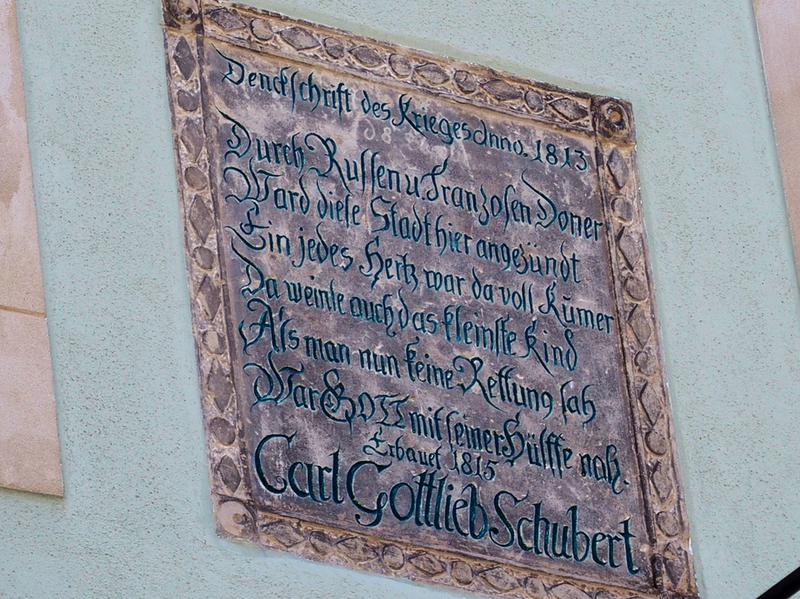 Denckschrift des Krieges Anno. 1813
Durch Russen u. Franzosen Doner
Ward diese Stadt hier angezündt
Ein jedes Hertz war da voll Kumer
Da weinte auch das kleinste Kind
Als man nun keine Rettung sah
War GOTT mit seiner Hülffe nah.
Erbauet 1815
Carl Gottlieb Schubert